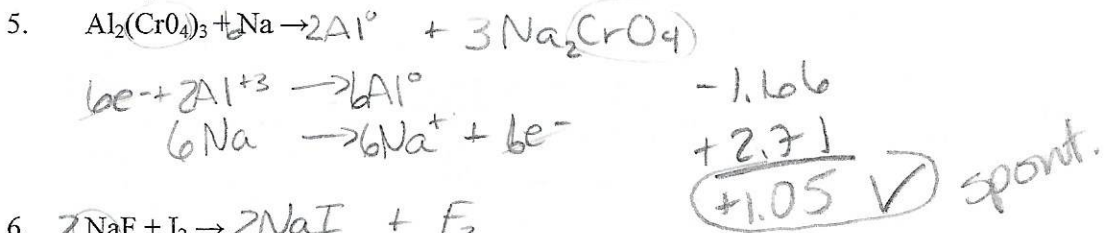 5. Al₂(Cr0₄)₃ + 6Na → 2Al⁰ + 3Na₂CrO₄
6e⁻ + 2Al⁺³ → 6Al⁰
6Na → 6Na⁺ + 6e⁻
-1.66
+2.71
+1.05 ✓ spont.
6. 2NaF + I₂ → 2NaI + F₂